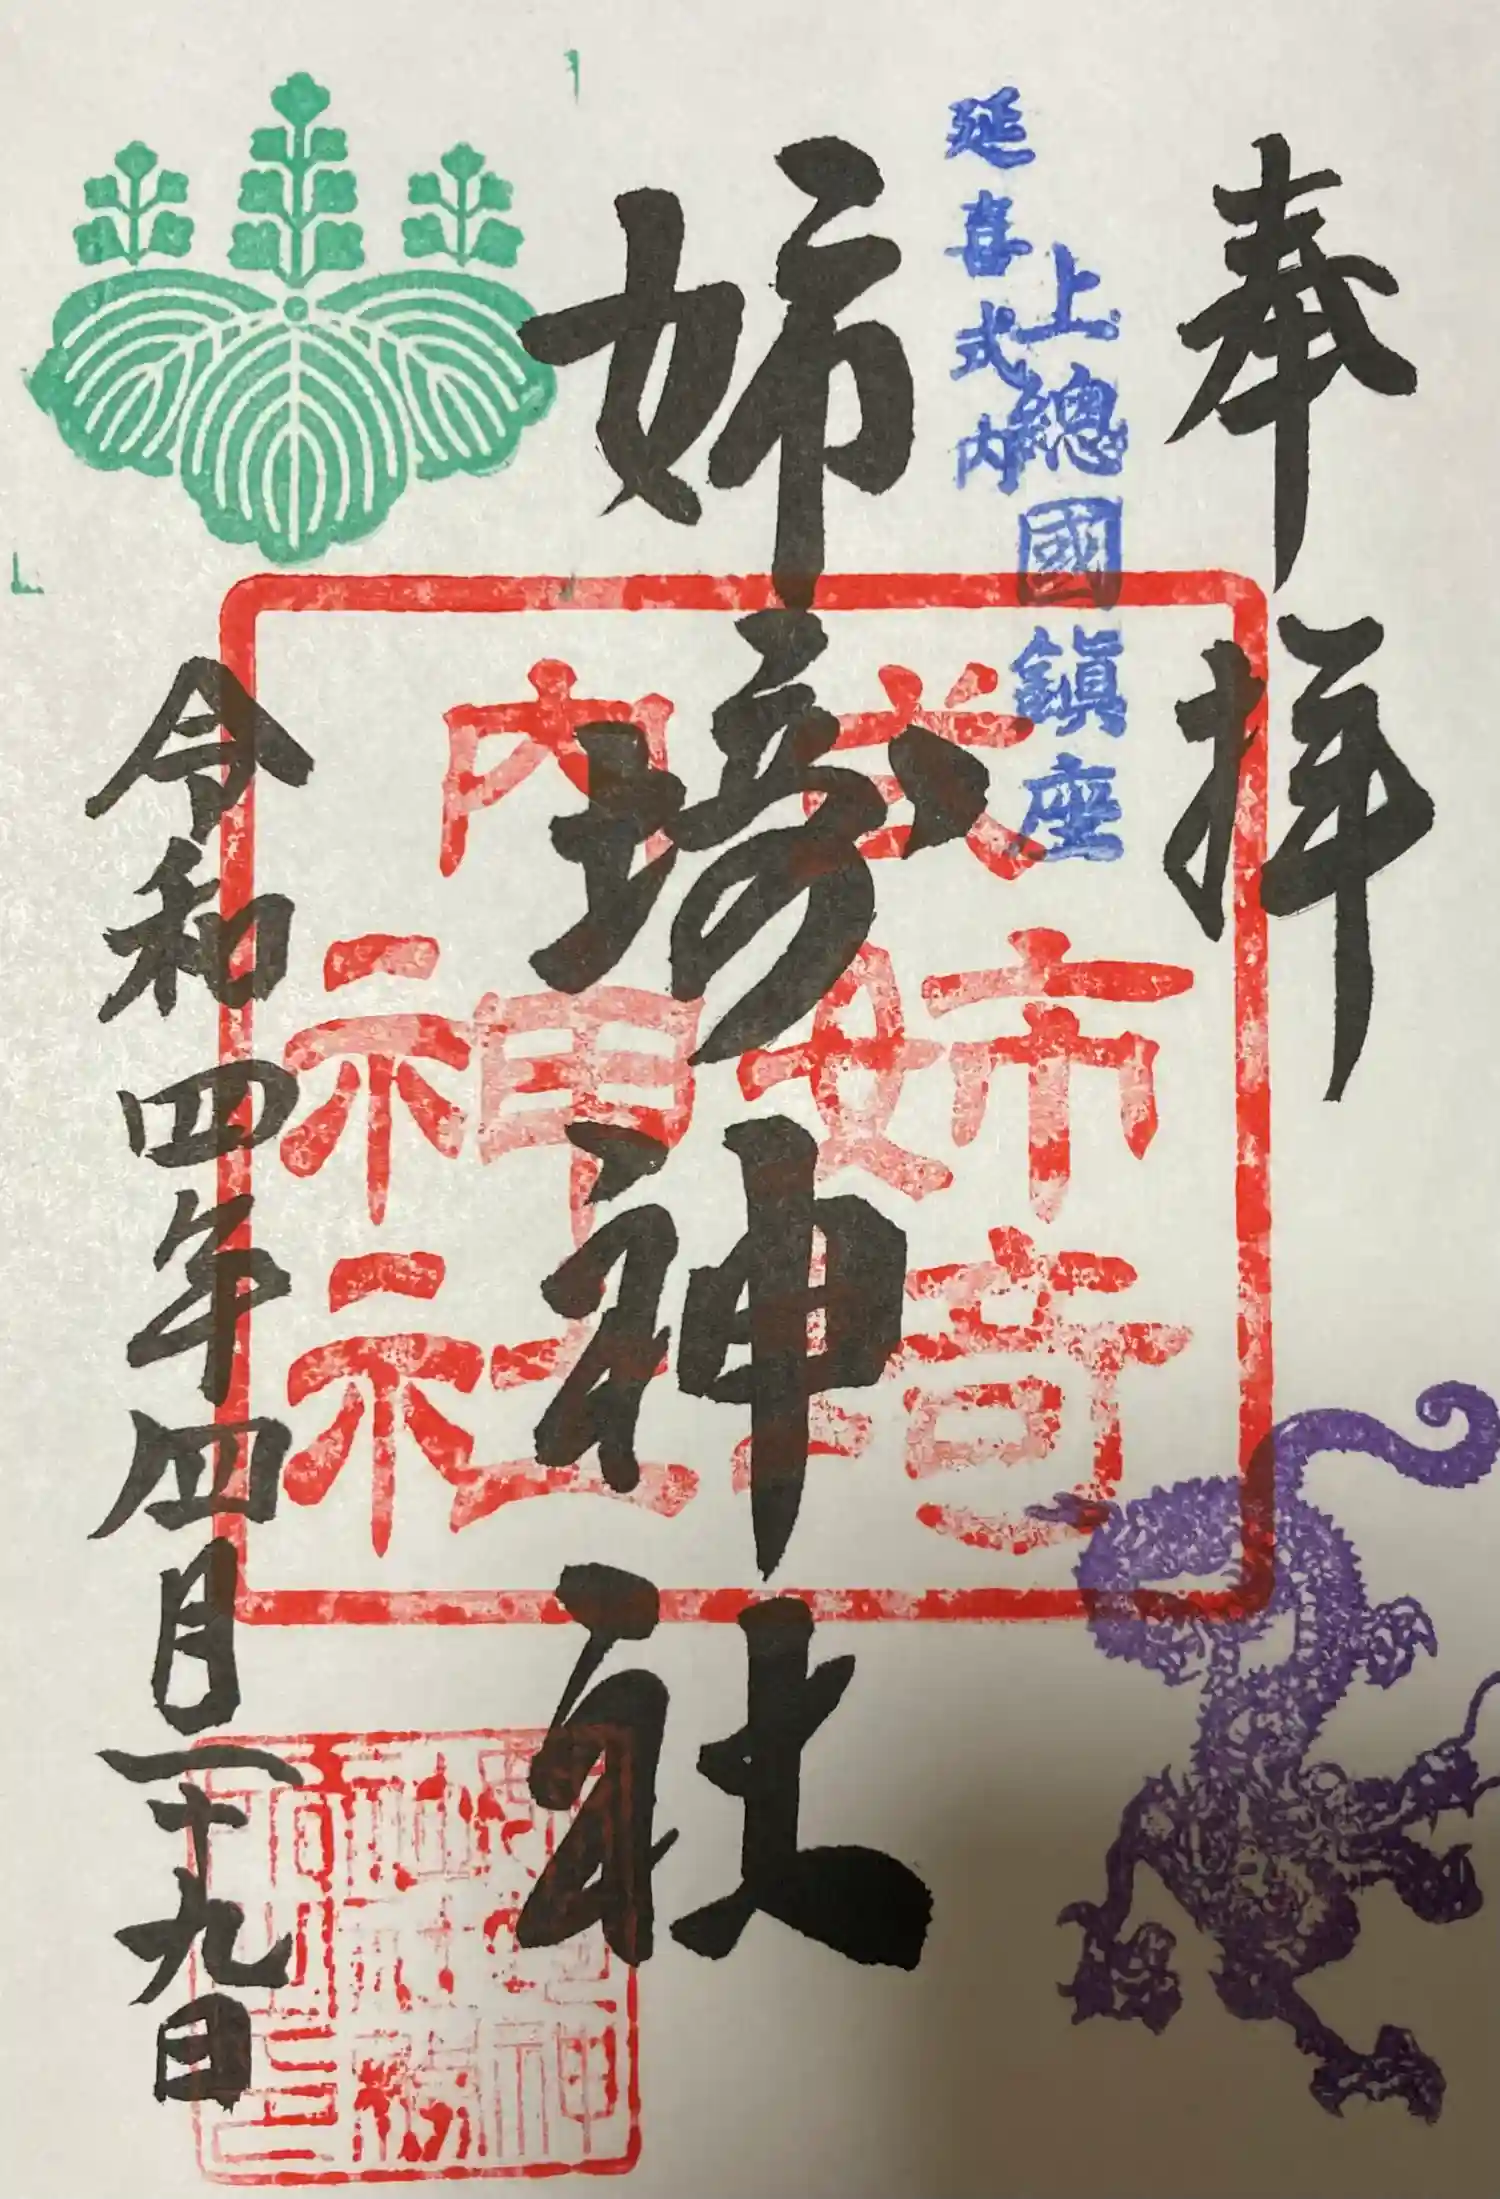 奉拝
上總國鎮座
延喜式内
姉埼神社
式内
姉埼
神社
令和四年四月二十九日